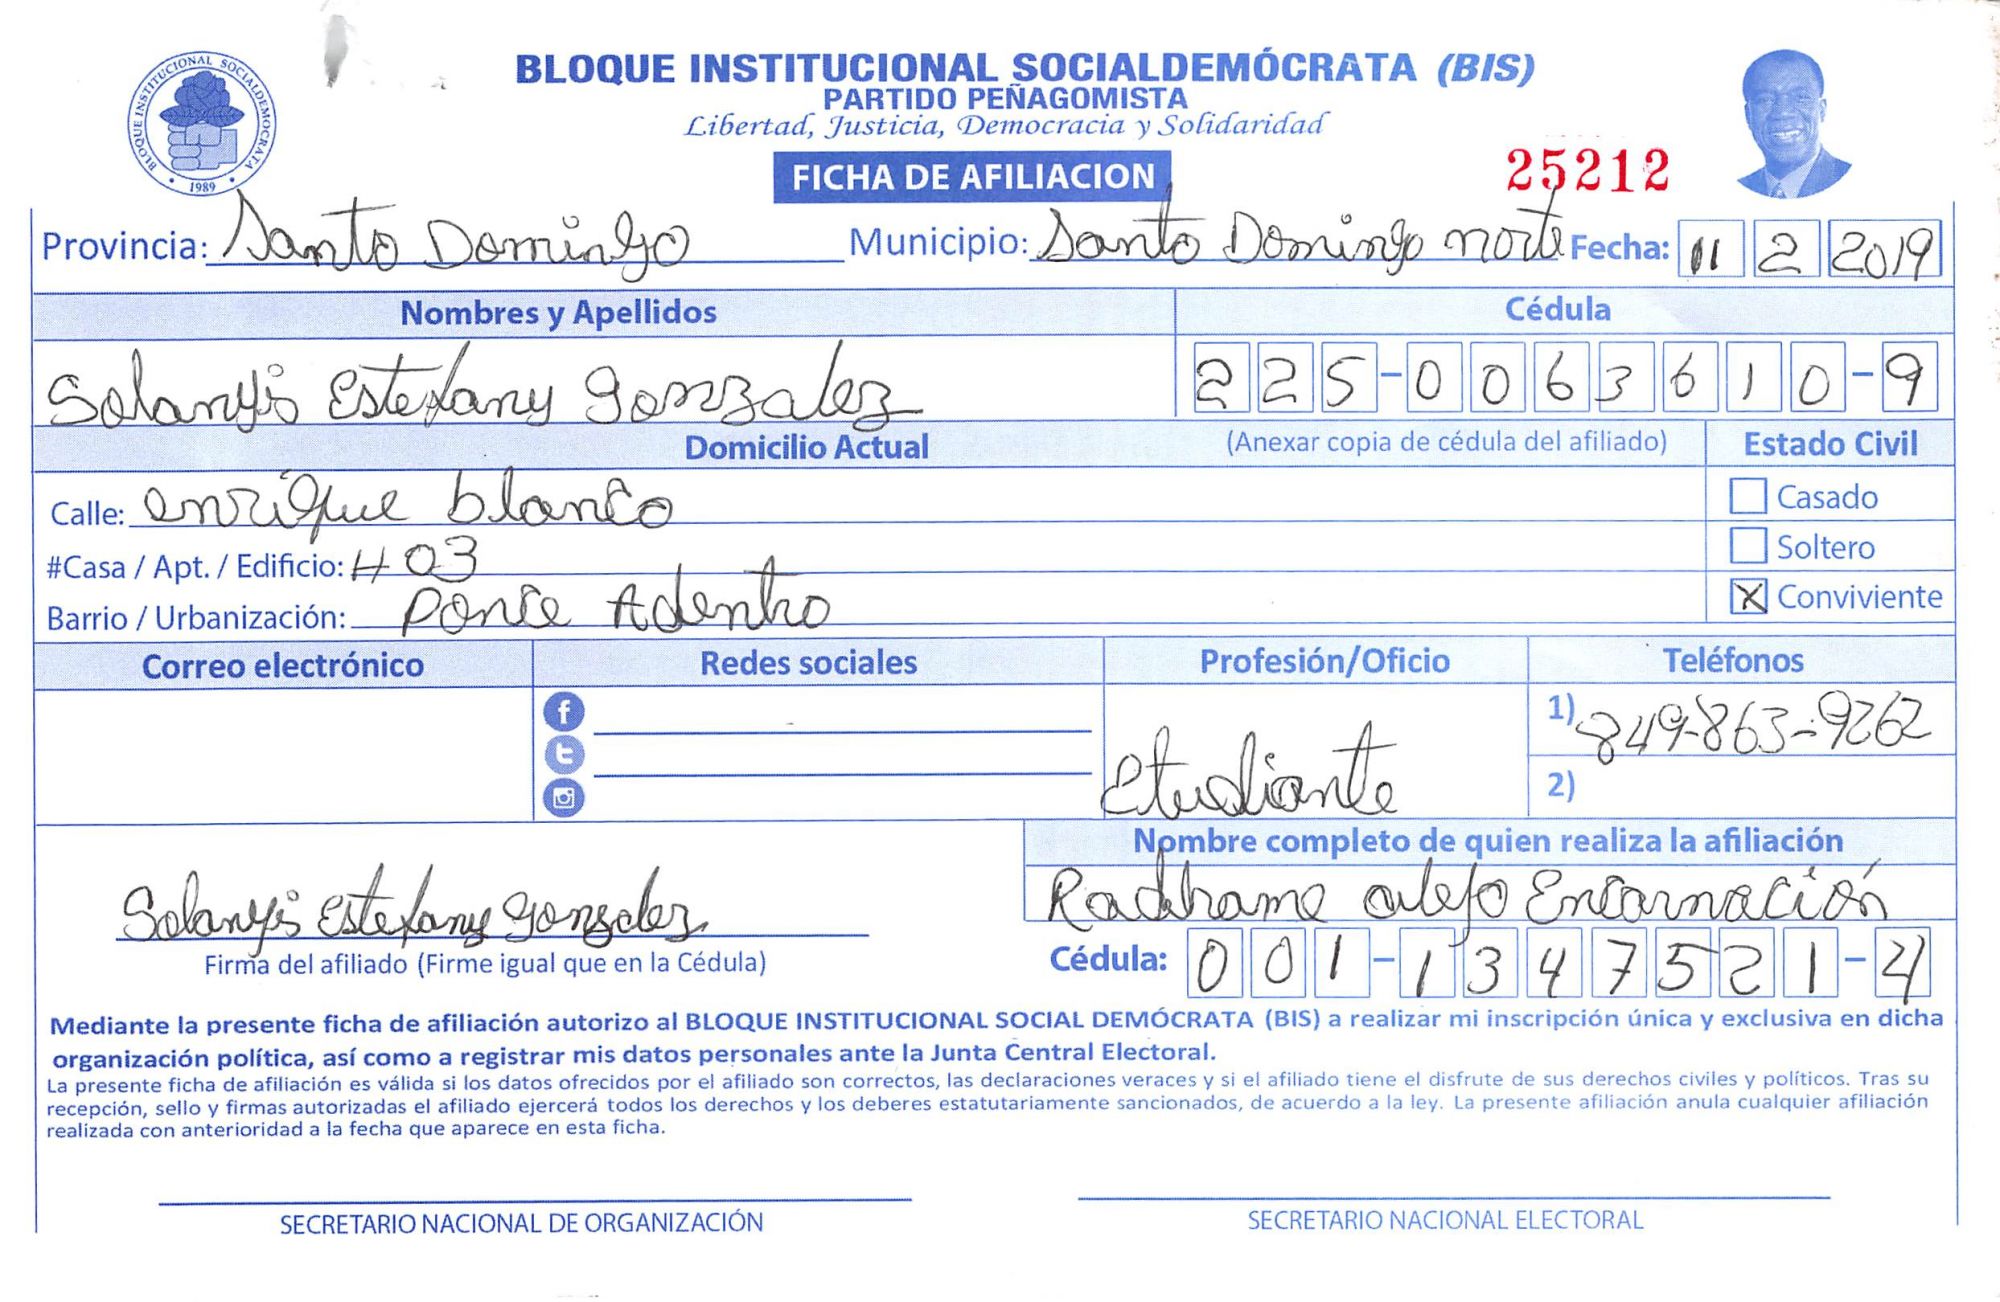 BLOQUE INSTITUCIONAL SOCIALDEMOCRATA
1989
BLOQUE INSTITUCIONAL SOCIALDEMÓCRATA (BIS)
PARTIDO PEÑAGOMISTA
Libertad, Justicia, Democracia y Solidaridad
FICHA DE AFILIACION
25212
Provincia: Santo Domingo Municipio: Santo Domingo norte Fecha: 11 2 2019
Nombres y Apellidos Cédula
Solanyis Estefany Gonzalez 225-0063610-9
Domicilio Actual (Anexar copia de cédula del afiliado) Estado Civil
Calle: enrique blanco Casado
#Casa / Apt. / Edificio: # 03 Soltero
Barrio / Urbanización: Ponce Adentro X Conviviente
Correo electrónico Redes sociales Profesión/Oficio Teléfonos
1) 849-863-9262
Etudiante 2)
Nombre completo de quien realiza la afiliación
Solanyis Estefany Gonzalez Radhame alejo Encarnación
Firma del afiliado (Firme igual que en la Cédula) Cédula: 001-1347521-4
Mediante la presente ficha de afiliación autorizo al BLOQUE INSTITUCIONAL SOCIAL DEMÓCRATA (BIS) a realizar mi inscripción única y exclusiva en dicha
organización política, así como a registrar mis datos personales ante la Junta Central Electoral.
La presente ficha de afiliación es válida si los datos ofrecidos por el afiliado son correctos, las declaraciones veraces y si el afiliado tiene el disfrute de sus derechos civiles y políticos. Tras su
recepción, sello y firmas autorizadas el afiliado ejercerá todos los derechos y los deberes estatutariamente sancionados, de acuerdo a la ley. La presente afiliación anula cualquier afiliación
realizada con anterioridad a la fecha que aparece en esta ficha.
SECRETARIO NACIONAL DE ORGANIZACIÓN SECRETARIO NACIONAL ELECTORAL